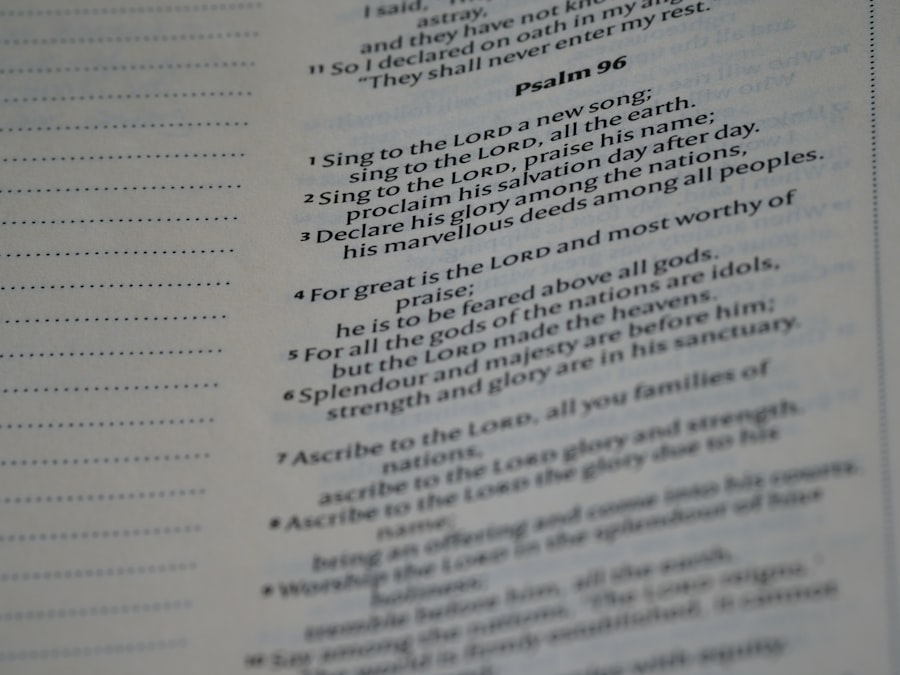 I said,
astray,
and they have not
11 So I declared on oath in my
“They shall never enter my rest.”
Psalm 96
1 Sing to the LORD a new song;
sing to the LORD, all the earth.
2 Sing to the LORD, praise his name;
proclaim his salvation day after day.
3 Declare his glory among the nations,
his marvellous deeds among all peoples.
4 For great is the LORD and most worthy of
praise;
he is to be feared above all gods.
5 For all the gods of the nations are idols,
but the LORD made the heavens.
6 Splendour and majesty are before him;
strength and glory are in his sanctuary.
7 Ascribe to the LORD, all you families of
nations,
ascribe to the LORD glory and strength.
8 Ascribe to the LORD the glory due to his
name;
bring an offering and come into his courts.
9 Worship the LORD in the splendour of his
holiness;
tremble before him, all the earth.
10 Say among the nations, “The LORD reigns.”
The world is firmly established, it cannot
with equity.